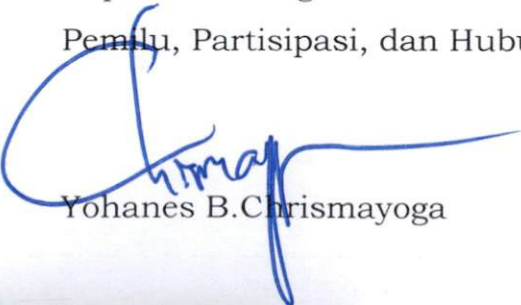 Pemilu, Partisipasi, dan
Chrismay
Yohanes B.Chrismayoga